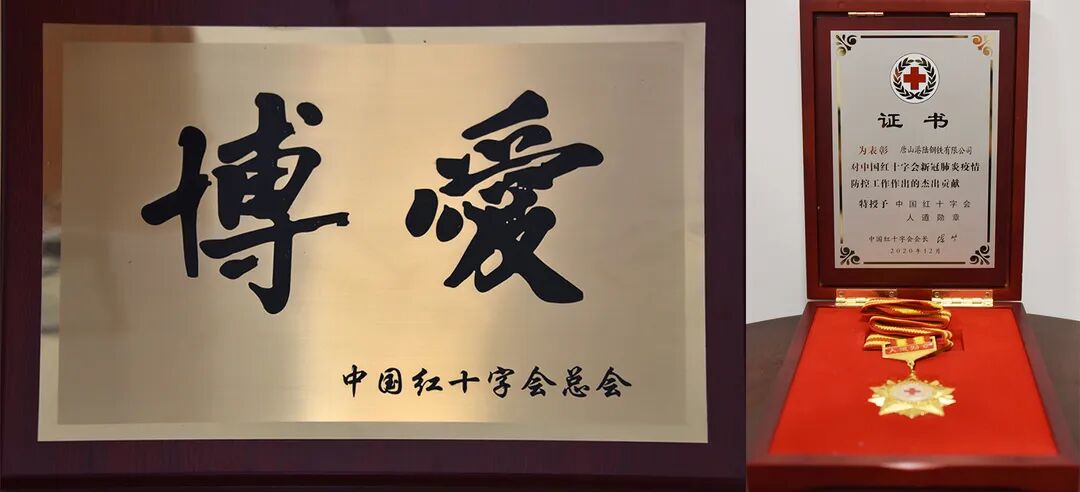 博愛
中国红十字会总会
证书
为表彰 唐山港陆钢铁有限公司
对中国红十字会新冠肺炎疫情
防控工作作出的杰出贡献
特授予 中国红十字会
人道勋章
中国红十字会会长 陈竺
2020年12月
人道勋章